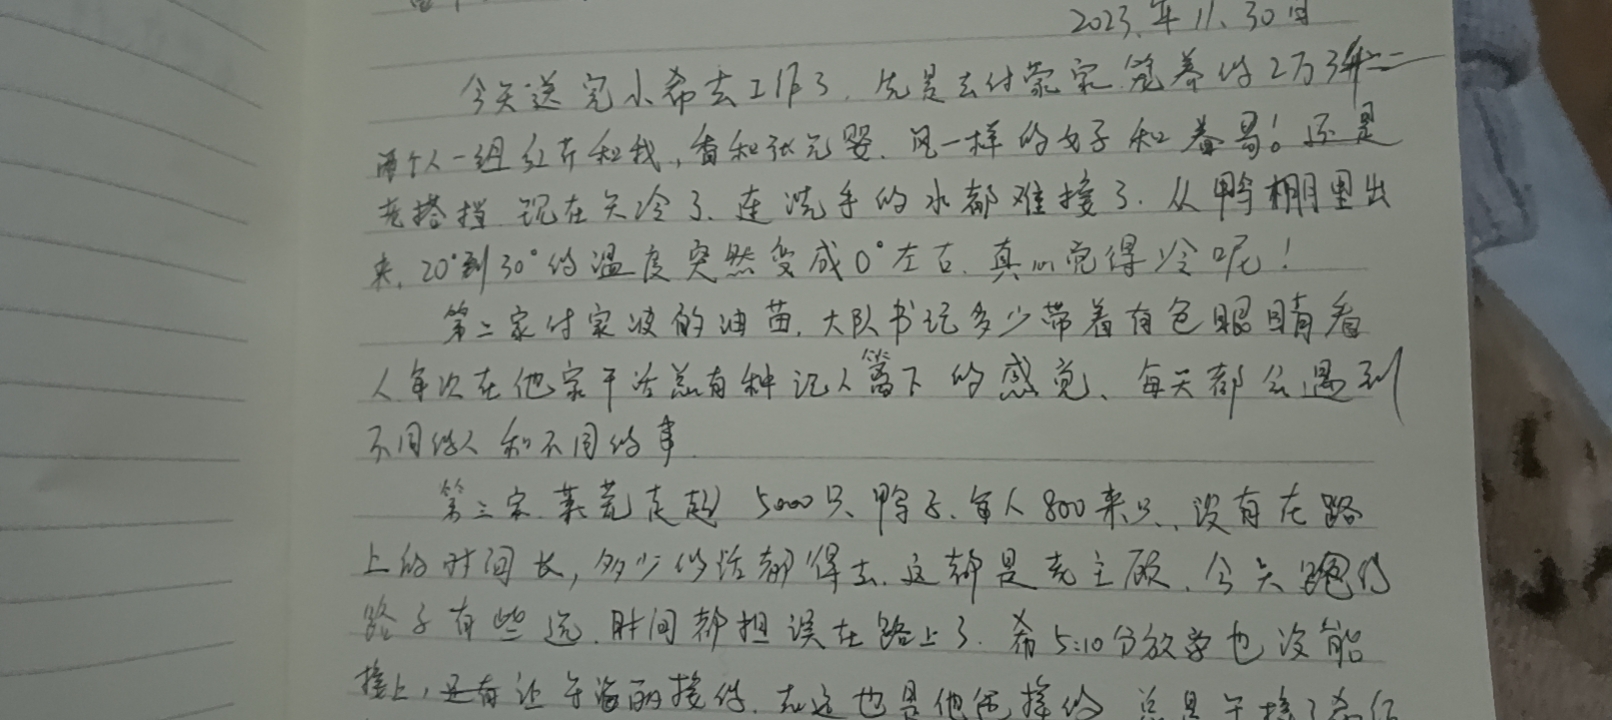 2023.年11.30日
今天送完小希去工作了.先是去付蒙家笼养的2万3
两个人一组红芹和我,香和张元婴.风一样的女子和春哥!还是
老搭挡 现在天冷了.连洗手的水都难接了.从鸭棚里出
来.20°到30°的温度突然变成0°左右.真心觉得冷呢!
第二家付家波的油苗.大队书记多少带着有色眼睛看
人每次在他家干活总有种记人篱下的感觉、每天都会遇到
不同的人和不同的事.
第三家.莱荒走超 5000只鸭子.每人800来只.没有在路
上的时间长,多少的话都得去.这都是老主顾.今天跑的
路子有些远.时间都担误在路上了.希5:10分放学也没能
接上,还有让 接的.在这也是他